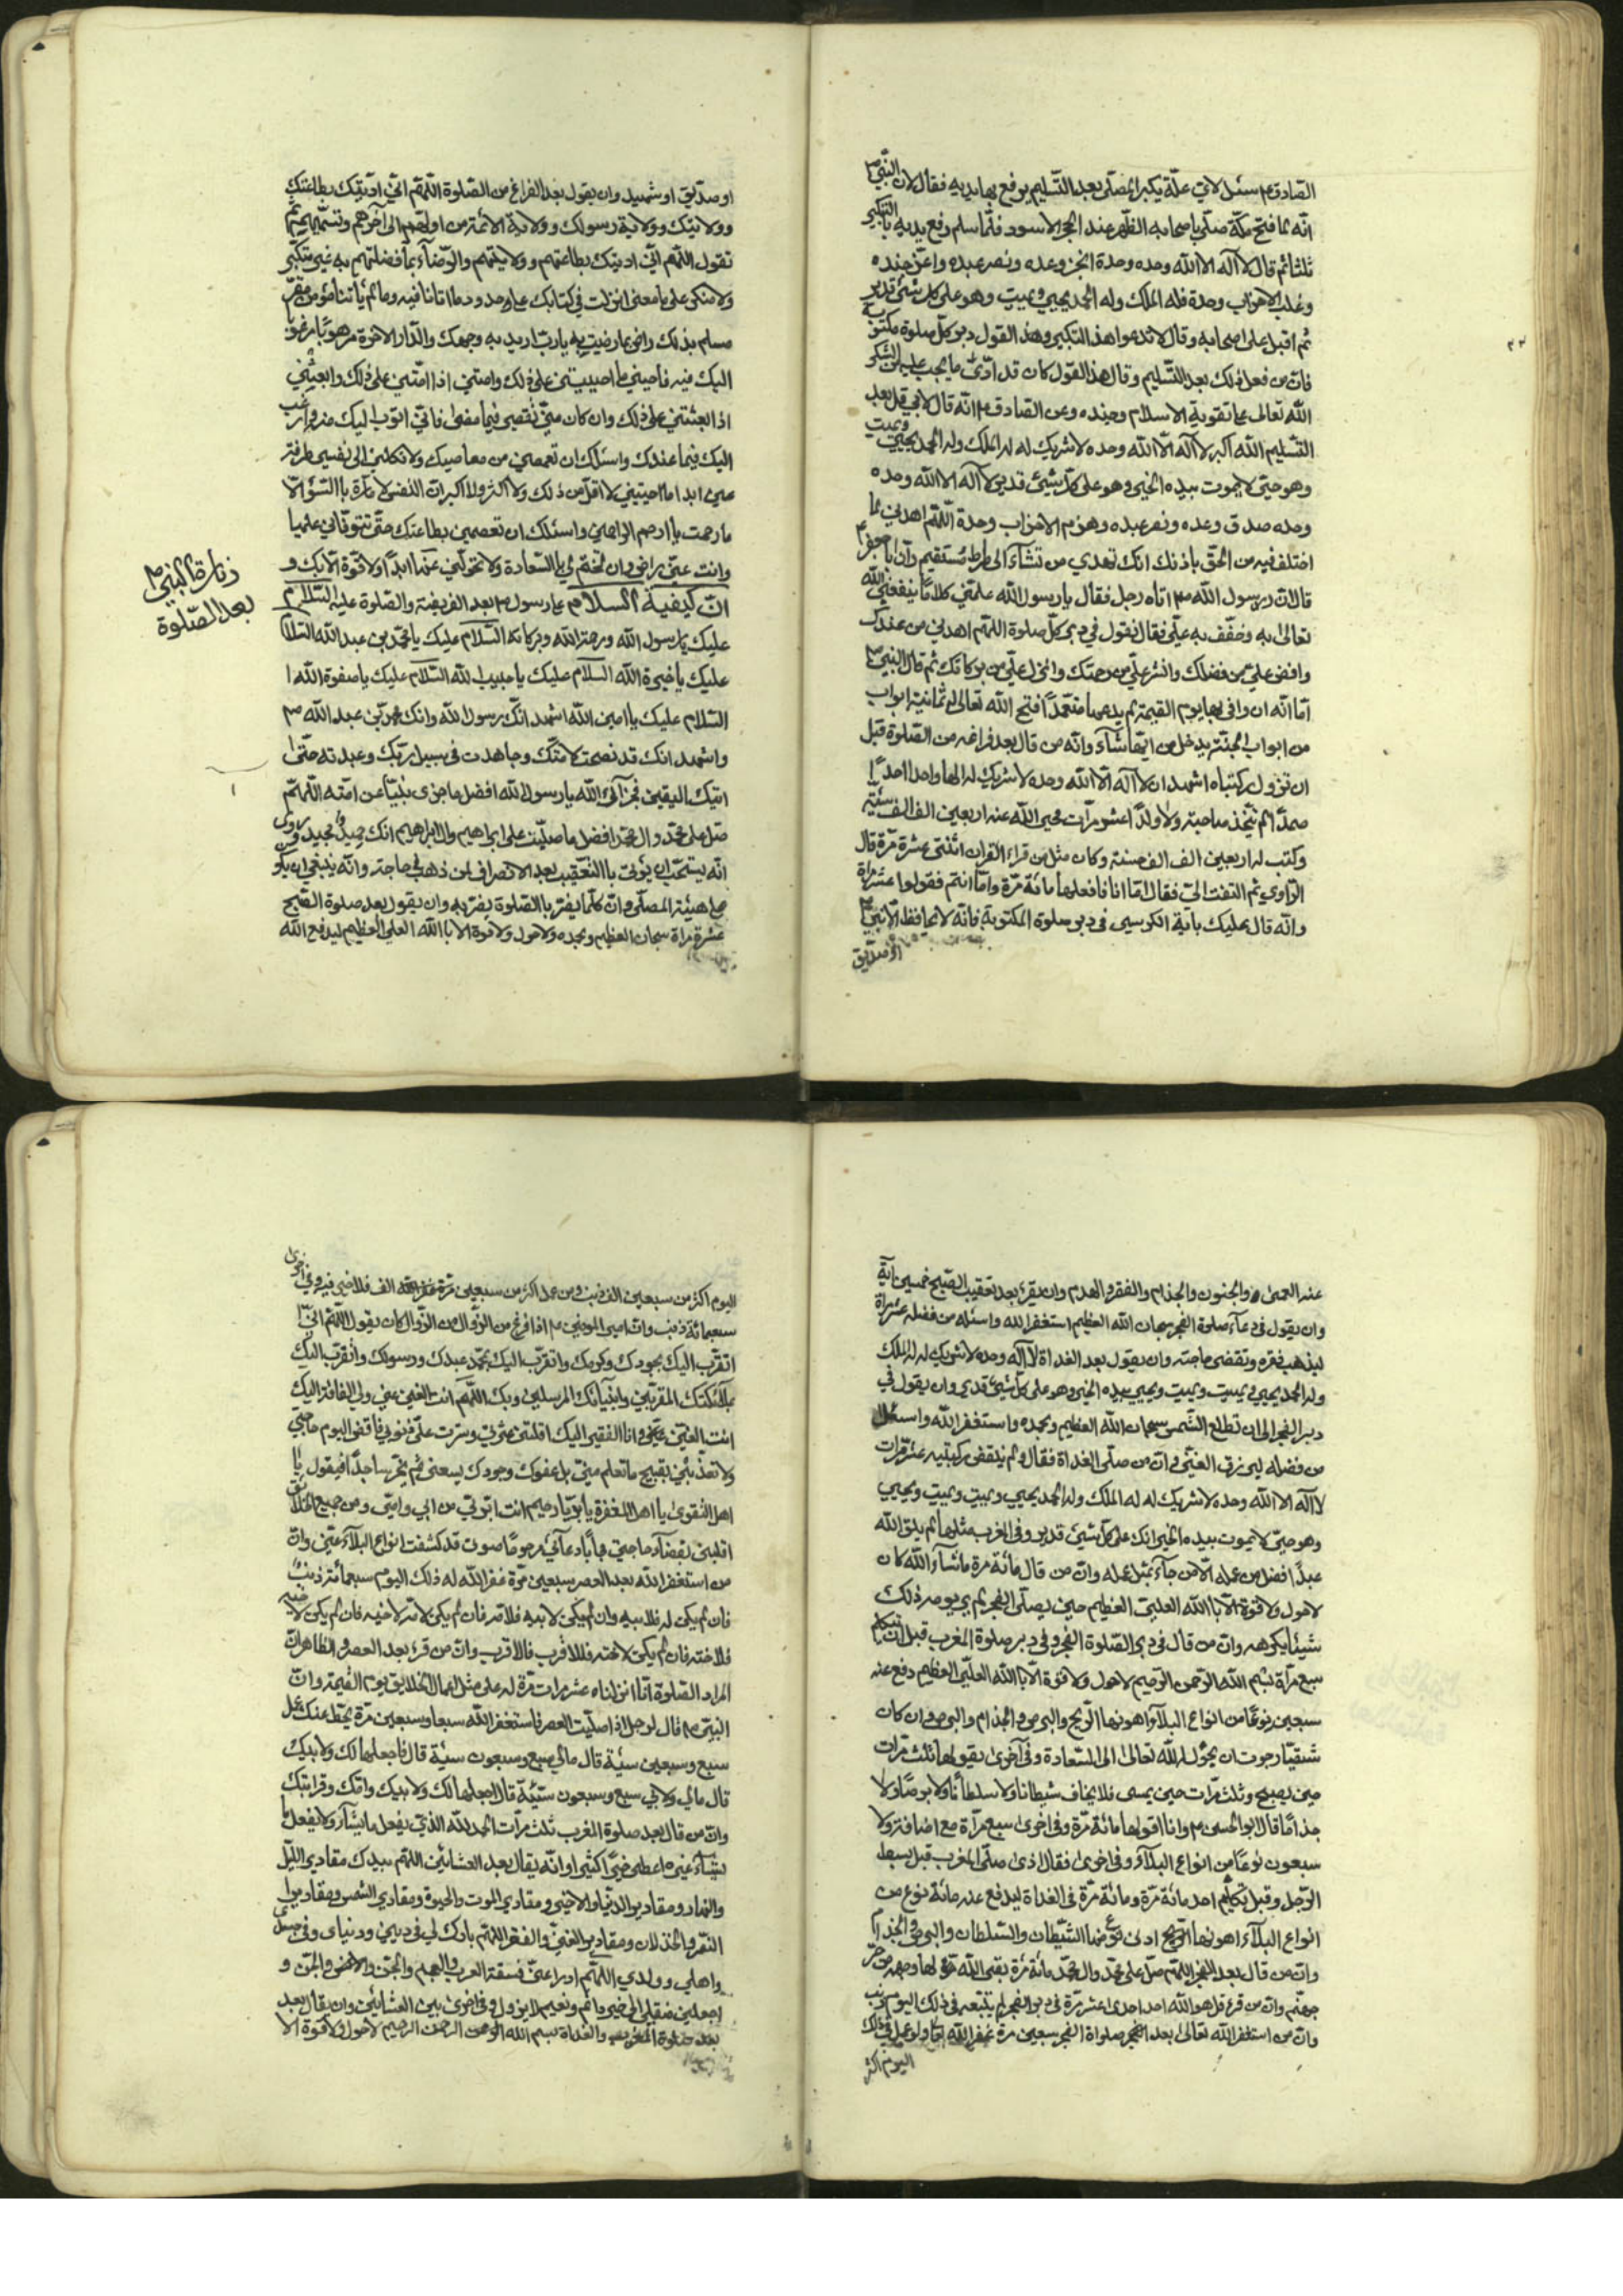 الصادق ع سئل لاي علّة يكبر المصلّي بعد التّسليم يرفع بها يديه فقال لان النّبي ص
انّه لما فتح مكّة صلّى باصحابه الظّهر عند الحجر الاسود فلمّا سلم رفع يديه بالتكبير
ثلثا ثم قال لا آله الا الله وحده وحدة انجز وعده ونصر عبده واعزّ جنده
وغلب الاحزاب وحدة فله الملك وله الحمد يحيي ويميت وهو على كل شئ قدير
ثم اقبل على اصحابه وقال لا تدعوا هذا التكبير وهذا القول دبر كلّ صلوة مكتوبة
فانّ من فعل ذلك بعد التّسليم وقال هذا القول كان قد ادّى ما يجب عليه من الشكر
الله تعالى على تقوية الاسلام وجنده وعن الصادق ع انّه قال لابي قل بعد
التّسليم الله اكبر لا آله الّا الله وحده لا شريك له له الملك وله الحمد يحيي ويميت
وهو حيّ لا يموت بيده الخير وهو على كلّ شيئ قدير لا آله الا الله وحده
وحده صدق وعده ونصر عبده وهزم الاحزاب وحدة اللّهم اهدني لما
اختلف فيه من الحقّ باذنك انك تهدي من تشآء الى صراط مستقيم وان ابا جعفر ع
قال انّ رسول الله ص اتاه رجل فقال يا رسول الله علمني كلامًا ينفعني الله
تعالى به وخفّف به عليّ فقال تقول في دبر كلّ صلوة اللّهم اهدني من عندك
وافض عليّ من فضلك وانشر عليّ من رحمتك وانزل عليّ من بركاتك ثم قال النبي ص
امّا انّه ان وافى بها يوم القيمة لم يدعها متعمّدًا فتح الله تعالى له ثمانية ابواب
من ابواب الجنّة يدخل من ايّها شآء وانّه من قال بعد فراغه من الصّلوة قبل
ان تزول ركبتاه اشهد ان لا آله الّا الله وحده لا شريك له الها واحدا احدًا
صمدًا لم يتّخذ صاحبة ولا ولدًا عشر مرّات محى الله عنه اربعين الف الف سيّئة
وكتب له اربعين الف الف حسنة وكان مثل من قراء القران اثنتي عشرة مرّة قال
الرّاوي ثم التفت اليّ فقال امّا انا فافعلها مائة مرّة وامّا انتم فقولوا عشر مراة
وانّه قال عليك بآية الكرسي في دبر صلوة المكتوبة فانّه لا يحافظ الّا نبيّ
او صدّيق
او صدّيق او شهيد وان يقول بعد الفراغ من الصّلوة اللّهم انّي ادينك بطاعتك
وولايتك وولاية رسولك وولاية الائمة من اولهم الى آخرهم وتسمّيهم ثمّ
تقول اللّهم انّي ادينك بطاعتهم وولايتهم والرّضاء بما فضلتهم به غير متكبّر
ولا مستكبر على معنى انزلت في كتابك على حدود ما اتانا فيه وما لم يأتنا مؤمن مقرّ
مسلم بذلك راض بما رضيت به يا ربّ اريد به وجهك والدّار الآخرة مرهوبًا ومرغوبًا
اليك فيه فاحيني ما احييتني على ذلك وامتني اذا امتّني على ذلك وابعثني
اذا بعثتني على ذلك وان كان منّي تقصير فيما مضى فانّي اتوب اليك منه وارغب
اليك فيما عندك واسئلك ان تعصمني من معاصيك ولا تكلني الى نفسي طرفة
عين ابدا ما احييتني لا اقلّ من ذلك ولا اكثر انّ النفس لامّارة بالسّوء الّا
ما رحمت يا ارحم الرّاحمين واسئلك ان تعصمني بطاعتك حتّى تتوفّاني عليها
وانت عنّي راض وان تختم لي بالسّعادة ولا تحوّلني عنها ابدًا ولا قوّة الّا بك و
انّ كيفية السلام على رسول ص بعد الفريضة والصّلوة عليه السّلام
زيارة النبي ص
بعد الصّلوة
عليك يا رسول الله ورحمة الله وبركاته السّلام عليك يا محمّد بن عبد الله السّلام
عليك يا خيرة الله السلام عليك يا حبيب الله السّلام عليك يا صفوة الله ا
السّلام عليك يا امين الله اشهد انّك رسول الله وانك محمّد بن عبد الله ص
واشهد انك قد نصحت لامّتك وجاهدت في سبيل ربّك وعبدته حتّى
اتيك اليقين فجزآك الله يا رسول الله افضل ما جزى نبيّا عن امّته اللّهم
صلّ على محمّد وال محمّد افضل ما صلّيت على ابراهيم وال ابراهيم انك حميدٌ مجيد وروى
انّه يستحبّ ان يؤتى بالتعقيب بعد الانصراف لمن ذهب لحاجة وانّه ينبغي ان يكون
على هيئة المصلّي وانّ كلّما يضرّ بالصّلوة يضرّ به وان يقول بعد صلوة الصّبح
عشرة مراة سبحان العظيم وبحمده ولا حول ولا قوة الا با الله العلي العظيم ليدفع الله
عنه العمى والجنون والجذام والفقر والهدم وان يقرء بعد تعقيب الصّبح خمسين آية
وان يقول في دعآء صلوة الفجر سبحان الله العظيم استغفر الله واسئله من فضله عشر مراة
ليذهب فقره وتقضى حاجته وان يقول بعد الغداة لا آله وحده لا شريك له له الملك
وله الحمد يحيي ويميت ويميت ويحيي بيده الخير وهو على كلّ شيئ قدير وان يقول في
دبر الفجر الى ان تطلع الشّمس سبحان الله العظيم وبحمده واستغفر الله واسئله
من فضله ليرزق الغنى وانّ من صلّى الغداة فقال ولم ينقض ركبتيه عشر مرّات
لا آله الا الله وحده لا شريك له له الملك وله الحمد يحيي ويميت ويميت ويحيي
وهو حيّ لا يموت بيده الخير انك على كلّ شيئ قدير وفى المغرب مثلها لم يلق الله
عبدًا افضل من عمله الّا من جآء بمثل عمله وانّ من قال مائة مرة ما شآء الله كان
لا حول ولا قوة الّا با الله العليّ العظيم حين يصلّي الفجر لم ير يومه ذلك
شيئا يكرهه وانّ من قال في دبر الصّلوة الفجر وفي دبر صلوة المغرب قبل ان يتكلم
سبع مرآة بسم الله الرّحمن الرّحيم لا حول ولا قوة الّا با الله العليّ العظيم دفع عنه
سبعين نوعًا من انواع البلآء اهونها الرّيح والبرص والجذام والبرص وان كان
شقيّا رجوت ان يحوّله الله تعالى الى السّعادة وفى آخرى يقولها ثلث مرّات
حين يصبح وثلث مرّات حين يمسى فلا يخاف شيطانا ولا سلطانًا ولا برصًا ولا
جذامًا قال ابو الحسن ع وانا اقولها مائة مرّة وفى اخرى سبع مرآة مع اضافة ولا
سبعون نوعًا من انواع البلآء وفى اخرى فقال اذا صلّى المغرب قبل يبسط
الرّجل وقبل تكلّم احد مائة مرّة ومائة مرّة فى الغداة ليدفع عنه مائة نوع من
انواع البلآء اهونها الرّيح ادنى نوع منها الشّيطان والسّلطان والبرص والجذام
وانّ من قال بعد الفجر اللّهم صلّ على محمّد وال محمّد مائة مرّة يقي الله بها وجهه من حرّ
جهنّم وانّ من قرء قل هو الله احد احدى عشر مرّة في دبر الفجر لم يتبعه في ذلك اليوم ذنب
وانّ من استغفر الله تعالى بعد الفجر صلواة الفجر سبعين مرة غفر الله له ولو عمل في ذلك
اليوم اكثر
اليوم اكثر من سبعين الف ذنب ومن عمل اكثر من سبعين الف فلا خير فيه وفي اخرى
سبعمائة ذنب وانّ امير المومنين ع اذا فرغ من الزّوال من الزّوال كان يقول اللّهم انّي
اتقرّب اليك بجودك وكرمك واتقرّب اليك بمحمّد عبدك ورسولك واتقرّب اليك
بملآئكتك المقرّبين وانبيآئك المرسلين وبك اللّهم انت الغني عنّي ولي الفاقة اليك
انت الغنيّ عنّي وانا الفقير اليك اقلتني عثرتي وسترت علىّ ذنوبي فاقض اليوم حاجتي
ولا تعذّبني بقبيح ما تعلم منّي بل عفوك وجودك يسعني ثم يخرّ ساجدًا فيقول يا
اهل التّقوى يا اهل المغفرة يا برّ يا رحيم انت ابرّ بي من ابي وامّي ومن جميع الخلائق
اقلبني بقضآء حاجتي مجابًا دعآئي مرحومًا صوتي قد كشفت انواع البلآء عنّي وانّ
من استغفر الله بعد العصر سبعين مرّة غفر الله له ذلك اليوم سبعمائة ذنب
فان لم يكن له فلابيه وان لم يكن لابيه فلامّه فان لم يكن لامّه فلاخيه فان لم يكن لاخيه
فلاخته فان لم يكن لاخته فللاقرب فالاقرب وانّ من قرء بعد العصر والظاهر انّ
المراد الصّلوة انّا انزلناه عشر مرات مرّة له على مثل اعمال الخلايق يوم القيمة وانّ
النبي ص قال لرجل اذا صلّيت العصر فاستغفر الله سبعا وسبعين مرّة يحطّ عنك عمل
سبع وسبعين سيئة قال مالي سبع وسبعون سيّئة قال فاجعلها لك ولابيك
قال مالي ولابي سبع وسبعون سيّئة قال اجعلها لك ولابيك وامّك وقرابتك
وانّ من قال بعد صلوة المغرب ثلث مرّات الحمد لله الذي يفعل ما يشآء ولا يفعل ما
يشآء غيره اعطى خيرًا كثيرا وانّه يقال بعد العشائين اللّهم بيدك مقادير اللّيل
والنّهار ومقادير الدّنيا والآخرة ومقادير الموت والحيوة ومقادير الشمس ومقادير
النّصر والخذلان ومقادير الغنى والفقر اللّهم بارك لي في ديني ودنياى وفى جسدى
واهلي وولدي اللّهم ادرا عنّي فسقة العرب والعجم والجنّ والانس والجنّ و
اجعلني منقلبي الى خير دائم ونعيم لا يزول وفى اخرى بين العشائين وان يقال بعد
بعد صلوة المغرب والغداة بسم الله الرّحمن الرّحيم لا حول ولا قوة الا